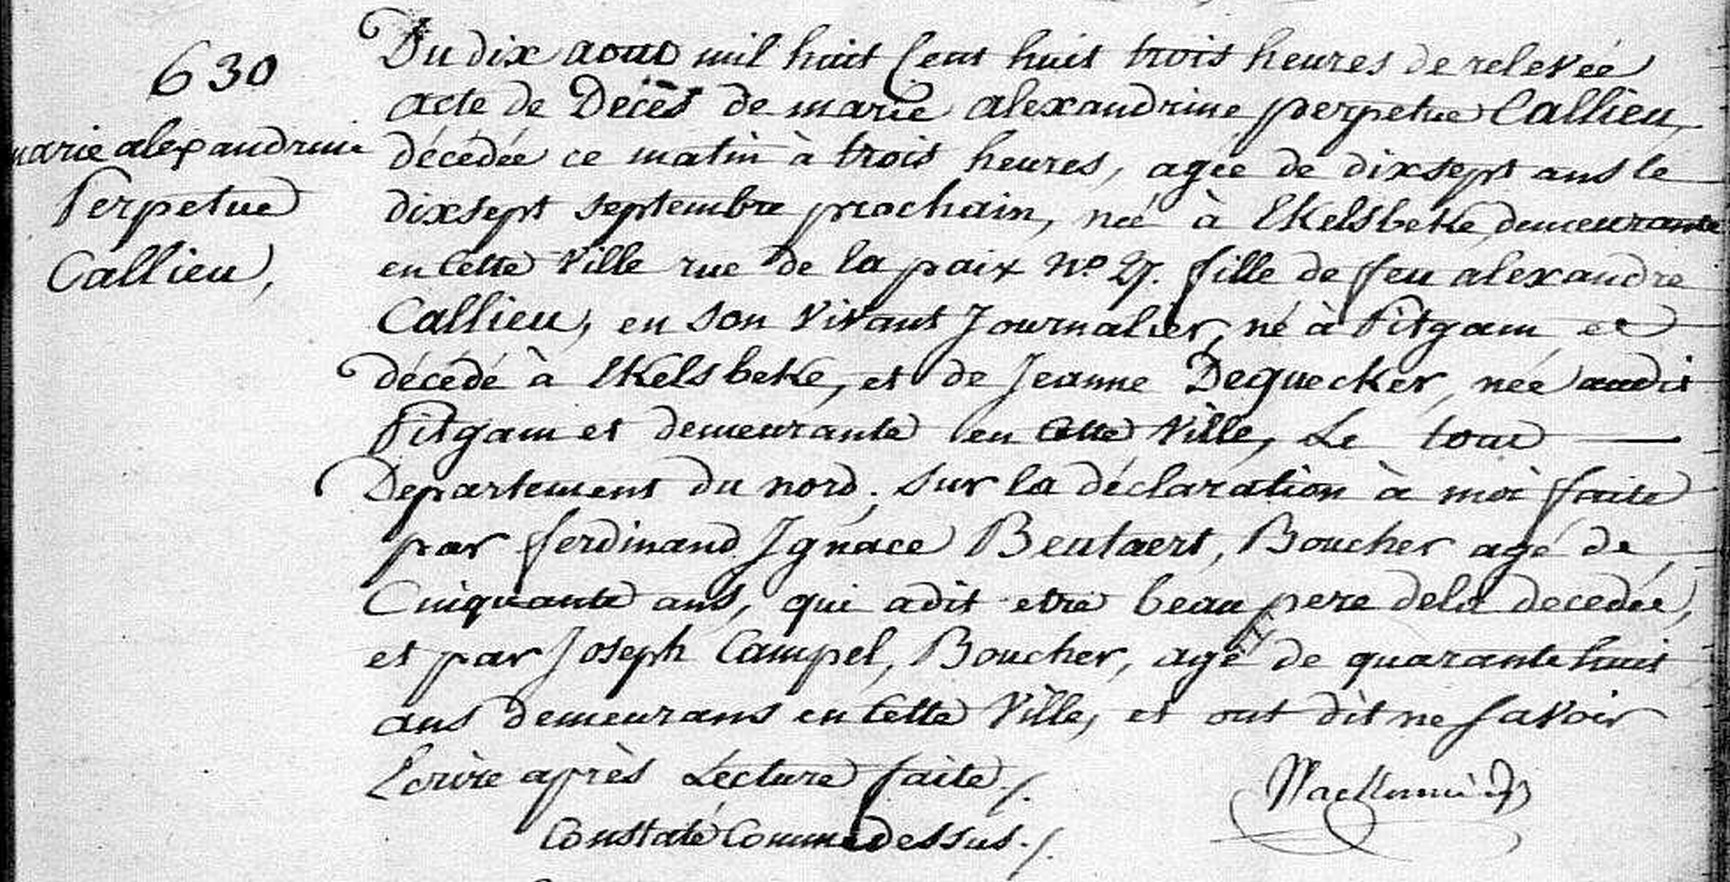 630
marie alexandrine
Perpetue
Callieu,
Du dix aout mil huit Cent huit trois heures de relevée
acte de Décès de marie alexandrine perpetue Callieu,
décédée ce matin à trois heures, agée de dixsept ans le
dixsept septembre prochain, née à Ekelsbeke, demeurante
en Cette Ville rue de la paix No 27. fille de feu alexandre
Callieu, en son Vivant Journalier, né à Pitgam et
décédé à Ekelsbeke, et de Jeanne Dequecker, née audit
Pitgam et demeurante en Cette Ville, Le tout
Departement du nord. Sur la déclaration à moi faite
par ferdinand Ignace Beutaert, Boucher agé de
Cinquante ans, qui adit etre beau pere dela decedée,
et par Joseph Campel, Boucher, agé de quarante huit
ans demeurans en Cette Ville, et ont dit ne Savoir
Ecrire après Lecture faite ./.
Constaté Comme dessus ./.